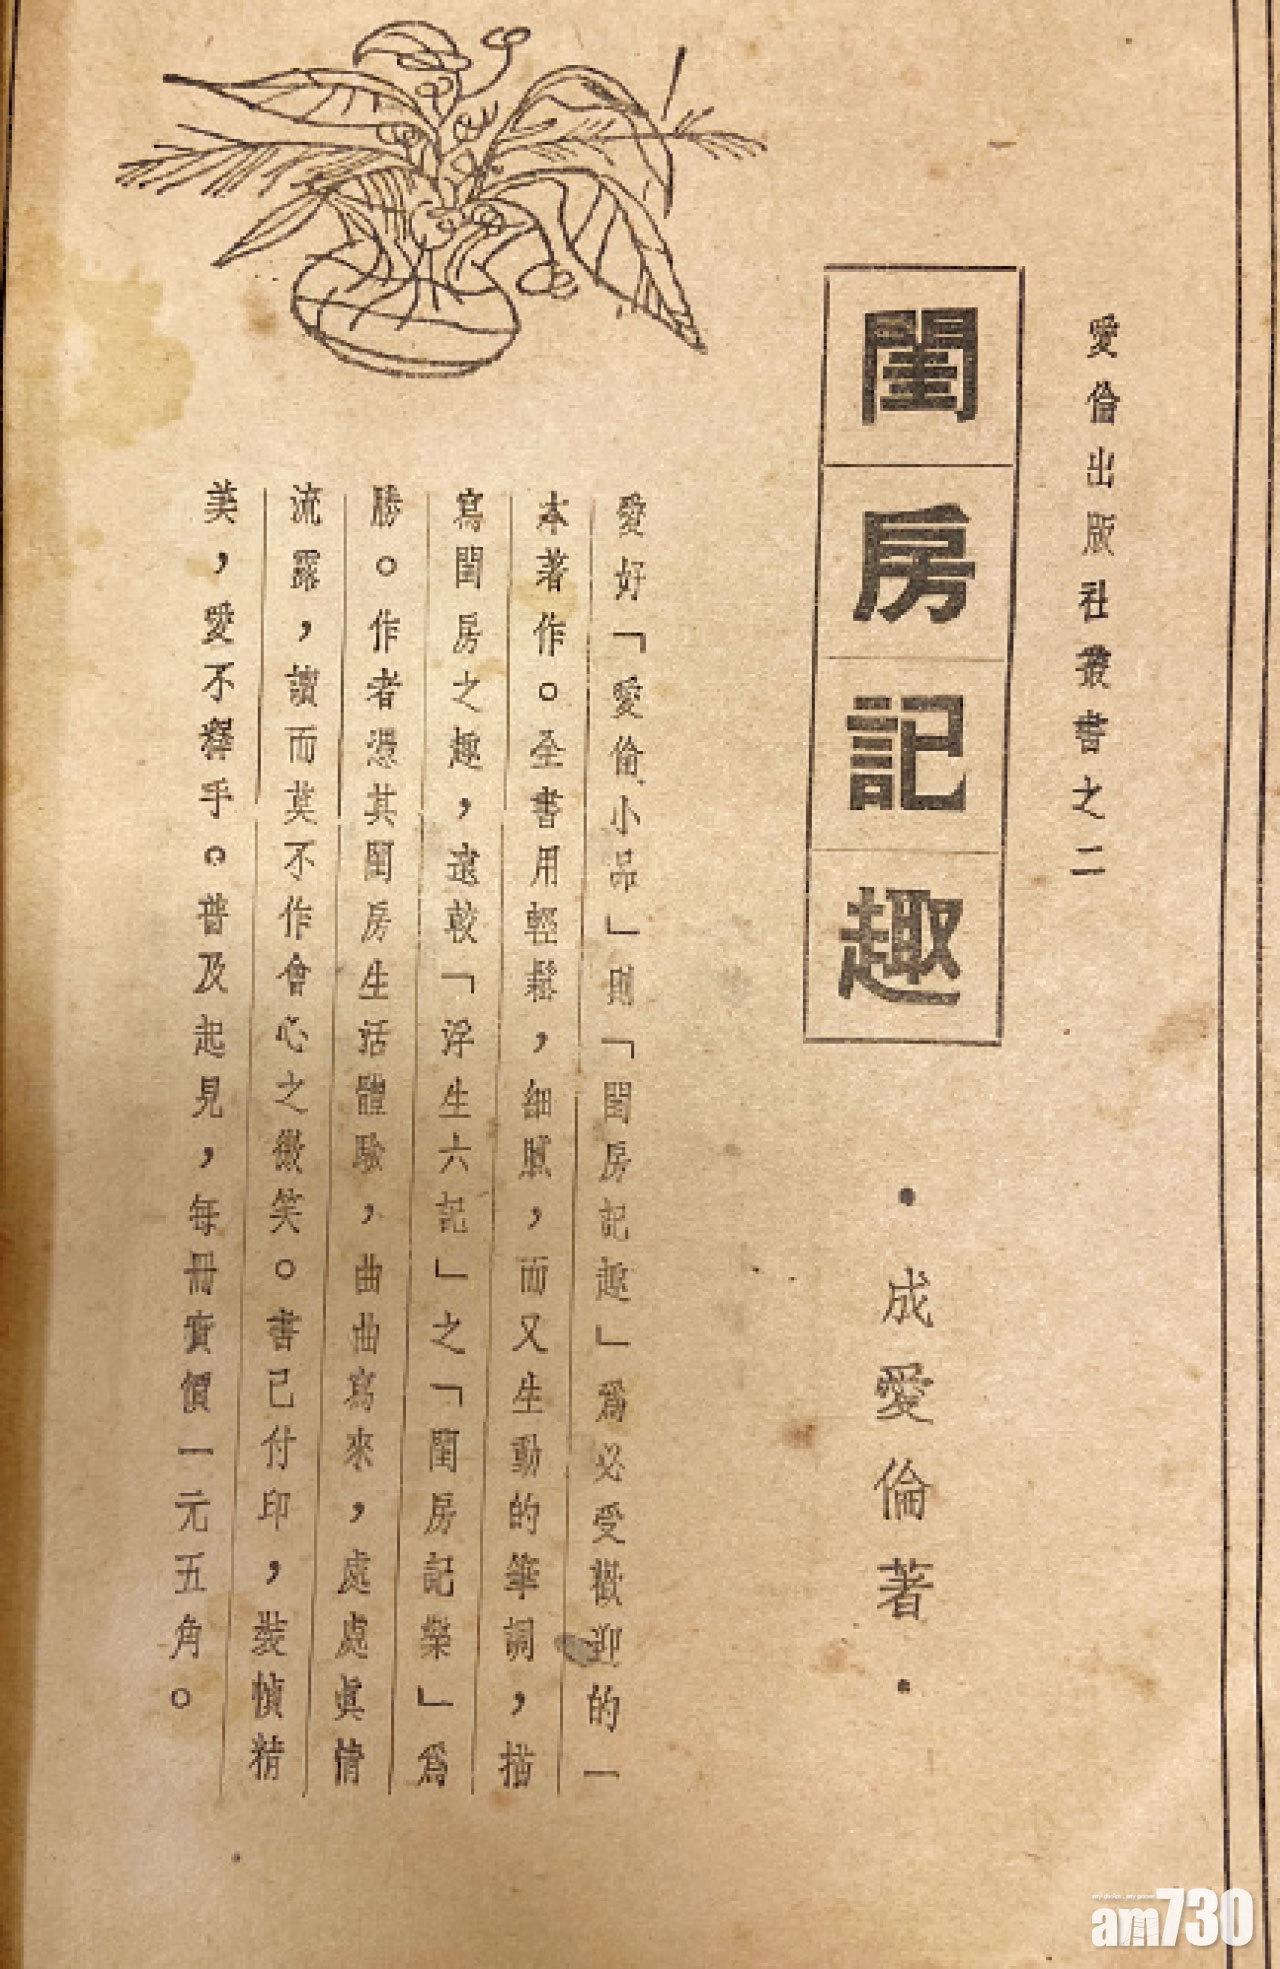 愛倫出版社叢書之二
閨房記趣
·成愛倫著·
愛好「愛倫小品」則「閨房記趣」爲必受歡迎的一
本著作。全書用輕鬆，細膩，而又生動的筆調，描
寫閨房之趣，遠較「浮生六記」之「閨房記樂」爲
勝。作者憑其閨房生活體驗，曲曲寫來，處處眞情
流露，讀而莫不作會心之微笑。書已付印，裝幀精
美，愛不釋手。普及起見，每冊實價一元五角。
my choice . my paper
am730